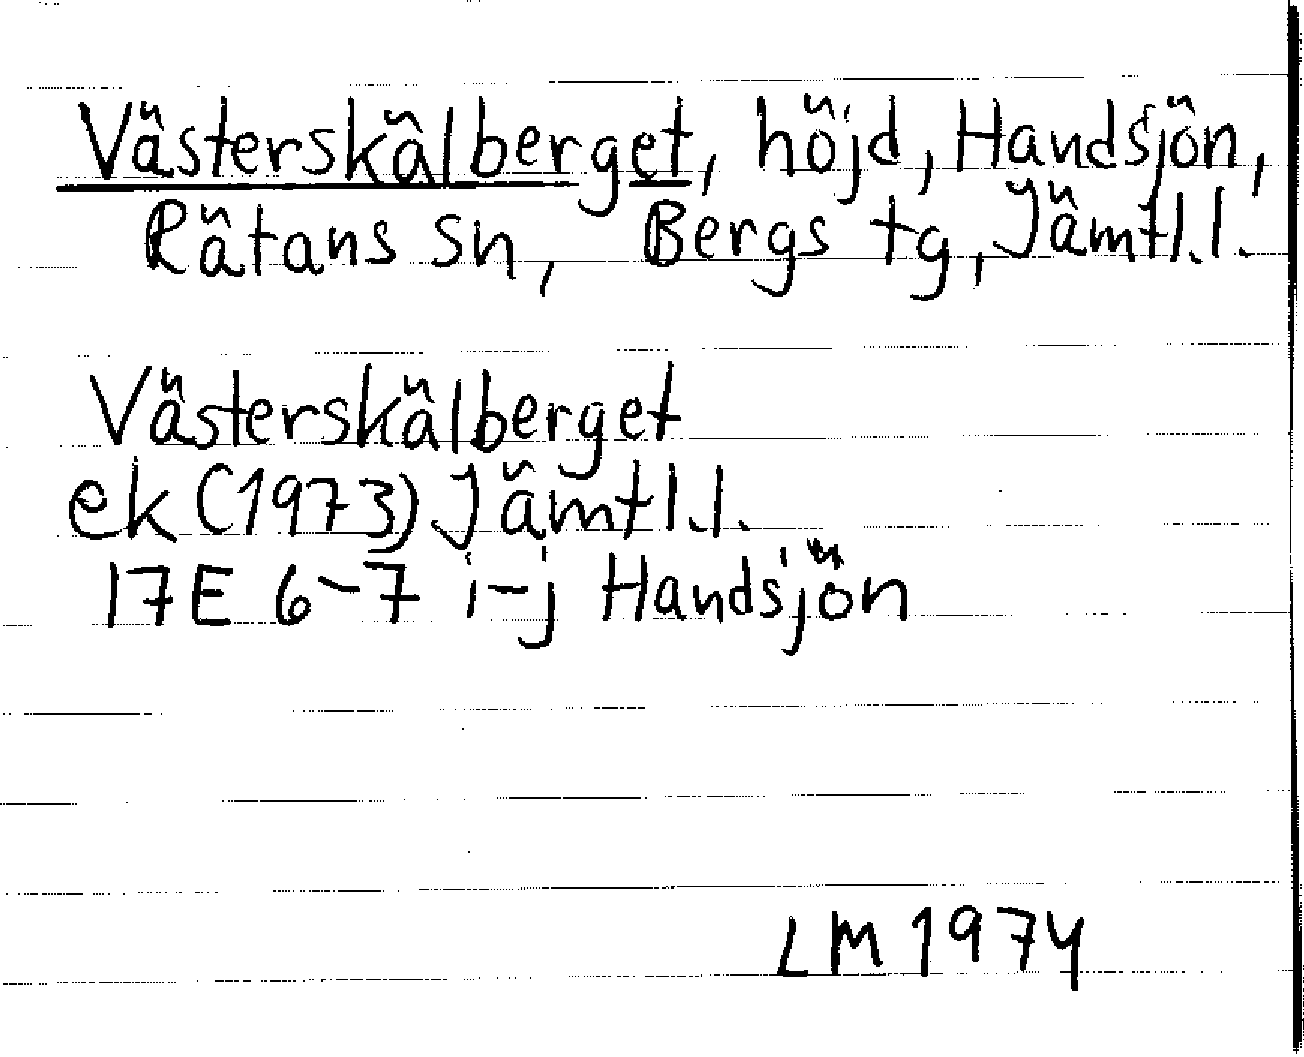 Västerskälberget, höjd, Handsjön,
Rätans sn, Bergs tg, Jämtl.l.
Västerskälberget
ek (1973) Jämtl.l.
17E 6-7 i-j Handsjön
LM 1974